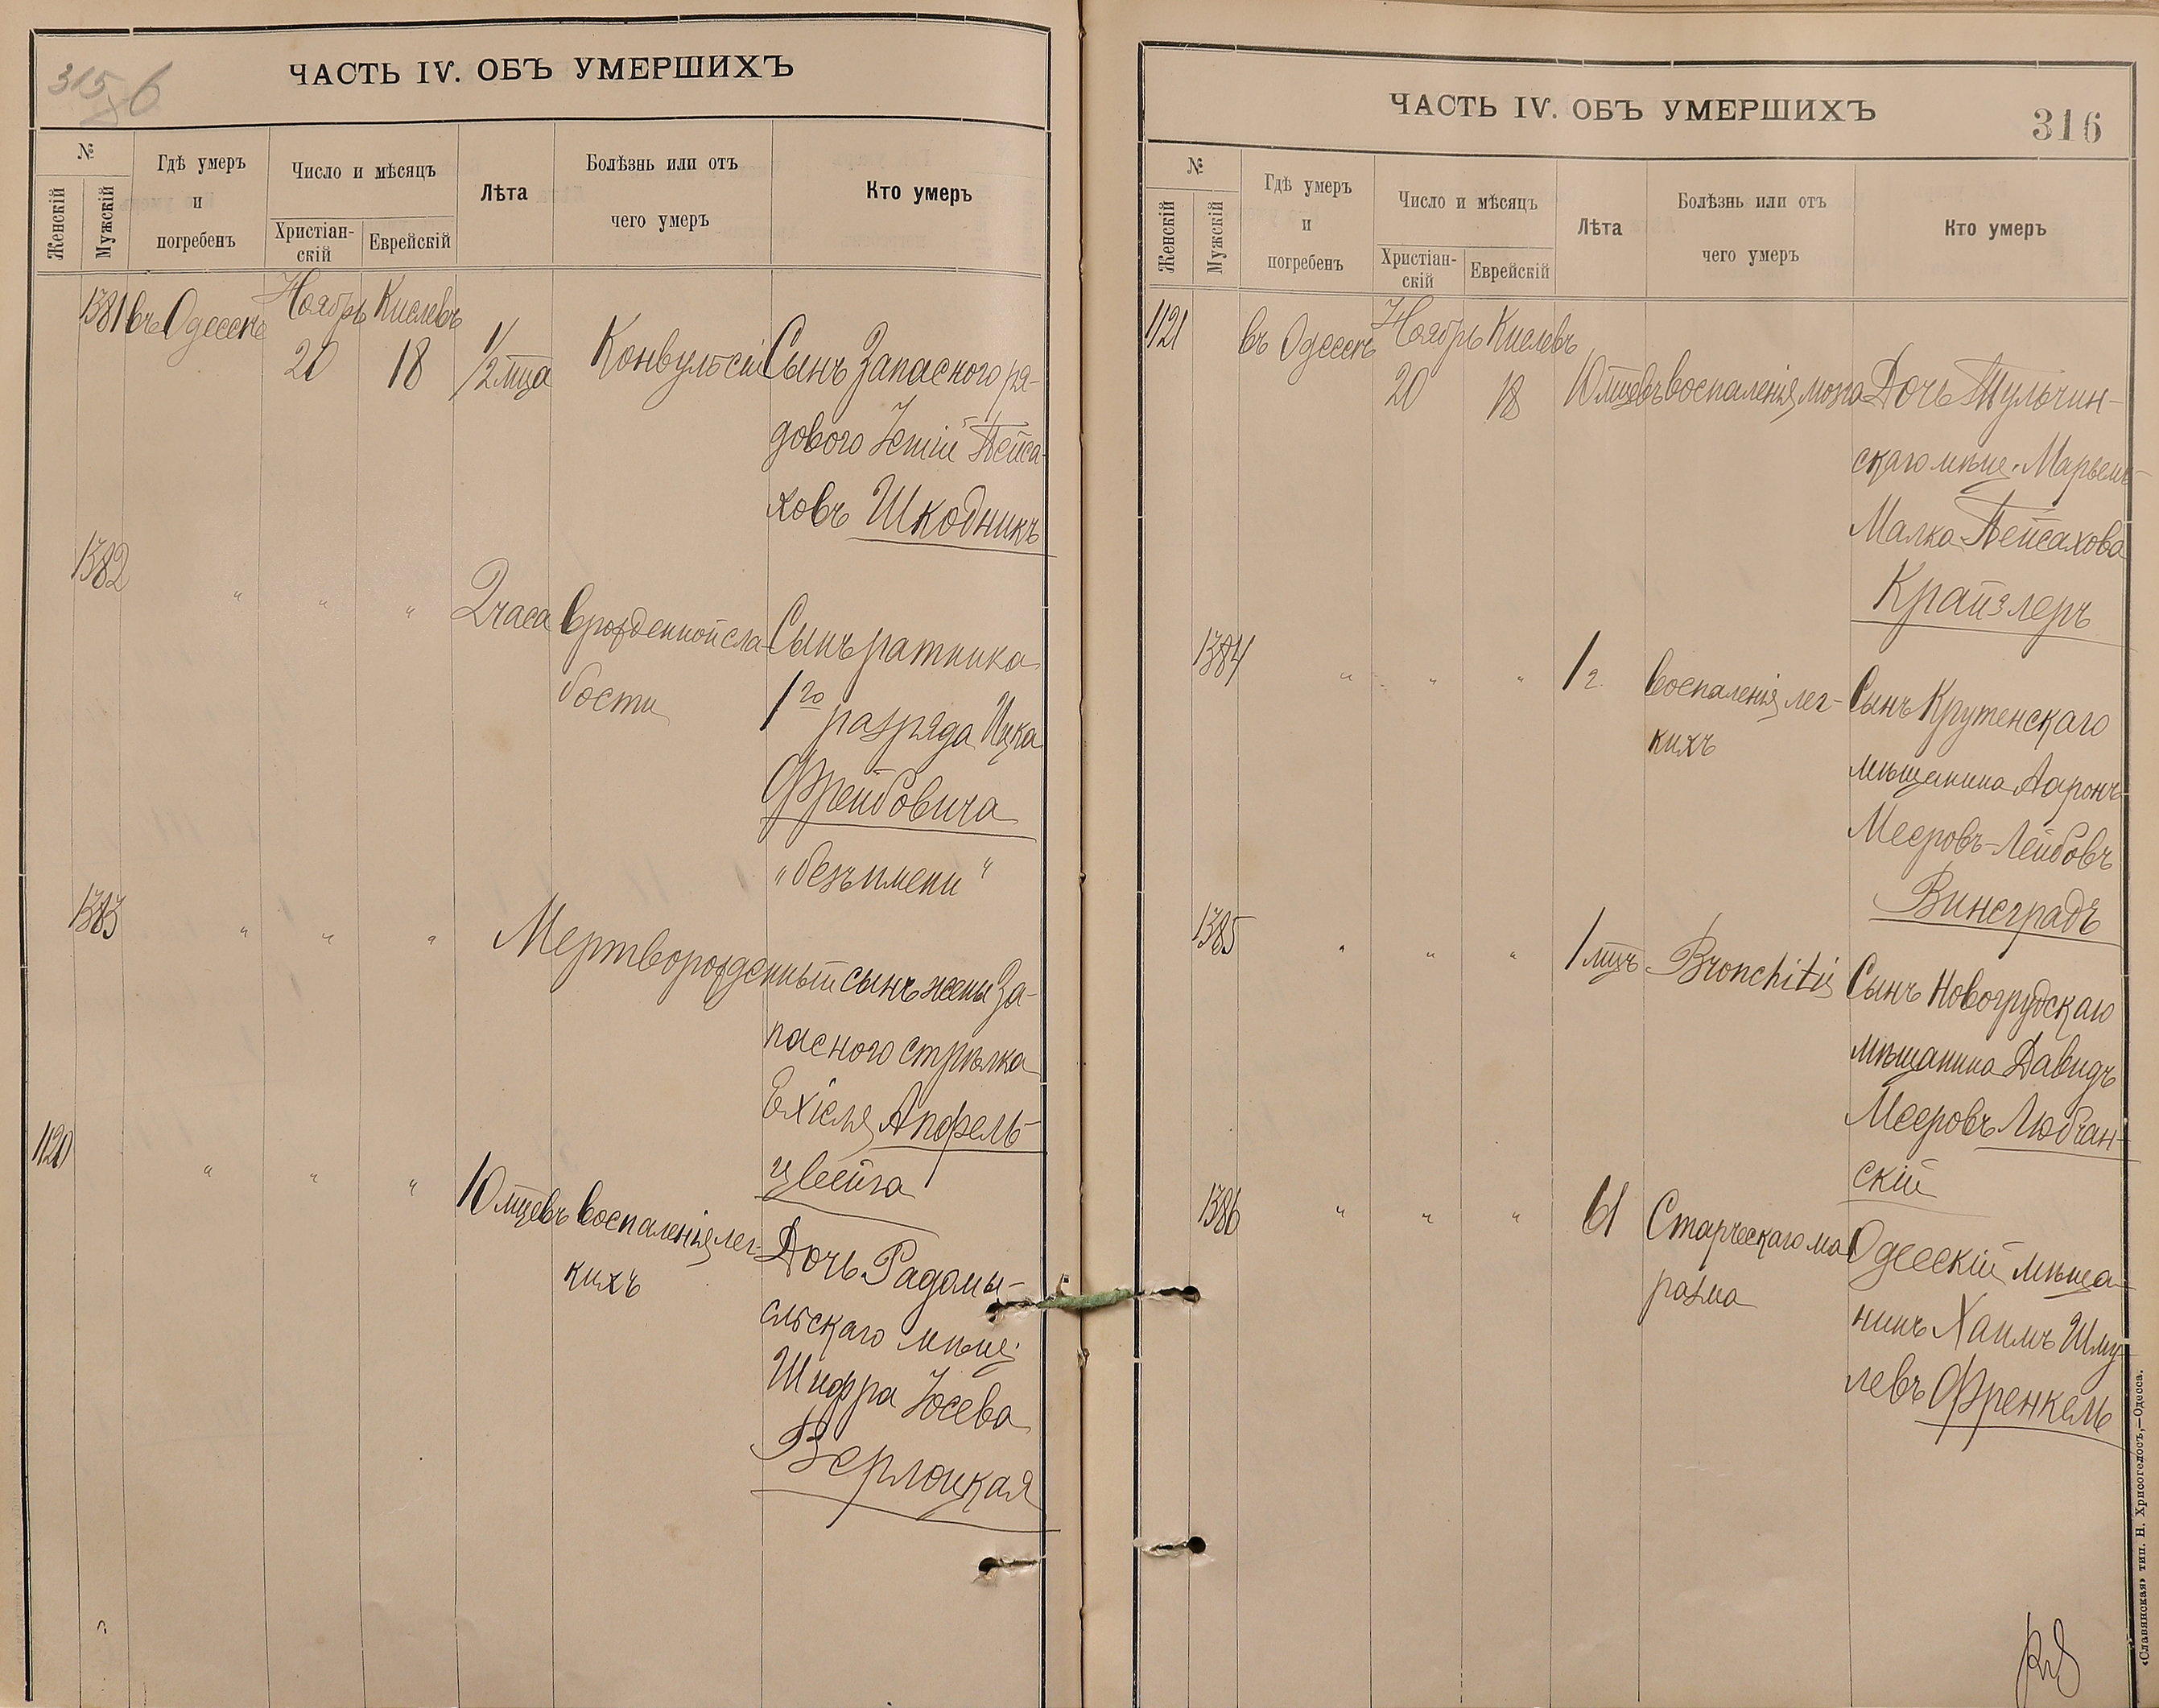 315 об
ЧАСТЬ IV. ОБЪ УМЕРШИХЪ
№
Женскій
Мужскій
Гдѣ умеръ
и
погребенъ
Число и мѣсяцъ
Христіан-
скій
Еврейскій
Лѣта
Болѣзнь или отъ
чего умеръ
Кто умеръ
1381 въ Одессѣ Ноябрь Кислевъ
20 18 1/2 мца Конвульсіи Сынъ Запасного ря-
дового Пейса-
ховъ Шкодникъ
1382 " " " 2 часа врожденной сла- Сынъ ратника
бости 1го разряда Ицка
Фрейбовича
"безъ имени"
1383 " " " Мертворожденный сынъ жены За-
паснаго стрѣлка
Ехіеля Апфель-
цвейга
1120 " " " 10 мцевъ воспаленія лег- Дочь Радомы-
кихъ сльскаго мѣщ.
Шифра Іосева
Верлоцкая
ЧАСТЬ IV. ОБЪ УМЕРШИХЪ
316
№
Женскій
Мужскій
Гдѣ умеръ
и
погребенъ
Число и мѣсяцъ
Христіан-
скій
Еврейскій
Лѣта
Болѣзнь или отъ
чего умеръ
Кто умеръ
1121 въ Одессѣ Ноябрь Кислевъ
20 18 10 мцевъ воспаленія мозга Дочь Тульчин-
скаго мѣщ. Марьемъ-
Малка Пейсахова
Крайзлеръ
1384 " " " 1 г. воспаленія лег- Сынъ Крутенскаго
кихъ мѣщанина Ааронъ
Мееровъ-Лейбовъ
Винеградъ
1385 " " " 1 мцъ Bronchitis Сынъ Новогрудскаго
мѣщанина Давидъ
Мееровъ Любчан-
скій
1386 " " " 61 Старческаго ма Одесскій мѣща-
разма нинъ Хаимъ Шму-
левъ Френкель
«Славянская» тип. Н. Хрисогелосъ,—Одесса.